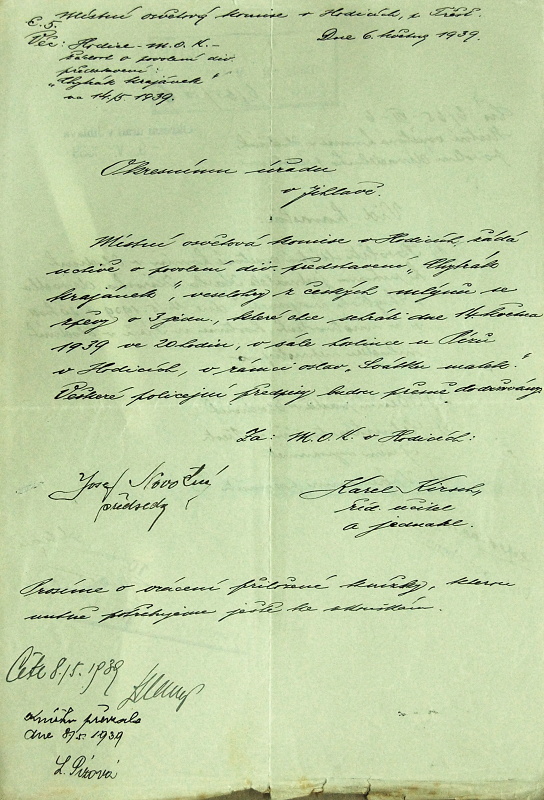 Místní osvětový komise v Hodicích, p. Třešť.
Č. 5. Dne 6. května 1939.
Věc: Hodice - M.O.K. -
žádost o povolení div.
představení:
„Chytrák krajánek"
na 14./5. 1939.
Okresnímu úřadu
v Jihlavě.
Místní osvětová komise v Hodicích, žádá
uctivě o povolení div. představení „Chytrák
krajánek", veselohry z českých mlýnů se
zpěvy o 3 jedn., které chce sehráti dne 14. května
1939 ve 20 hodin, v sále hostince u Pízů
v Hodicích, v rámci oslav „Svátku matek."
Veškeré policejní předpisy budou přesně dodržovány.
Za: M.O.K. v Hodicích:
Josef Novotný
předseda
Karel Kirsch,
říd. učitel
a jednatel.
Prosíme o vrácení přiložené knížky, kterou
nutně potřebujeme ještě ke zkouškám.
8./5. 1939
knihu převzala
dne 8/5 1939
L. Pízová